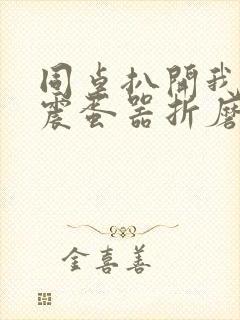 同桌扒開我
震蛋器折磨
金喜善